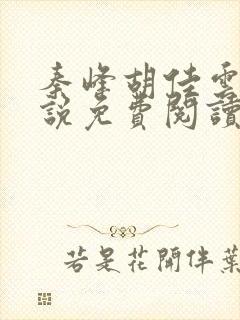 秦峰胡佳雲
說免費閱讀
若是花開伴葉